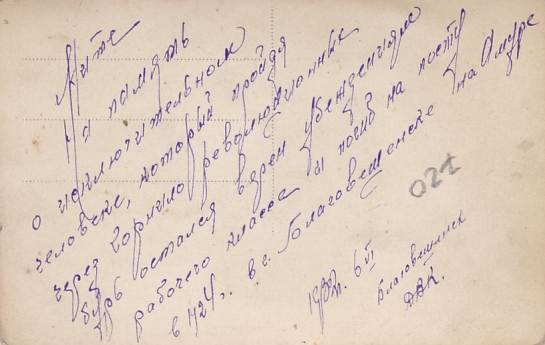 Мите
на память
о исключительном
человеке, который пройдя
через горнило революционных
бурь остался верен убеждениям
рабочего класса и погиб на посту
в 1924 г. в г. Благовещенске на Амуре
6/VI
Благовещенск
ДВК.
021